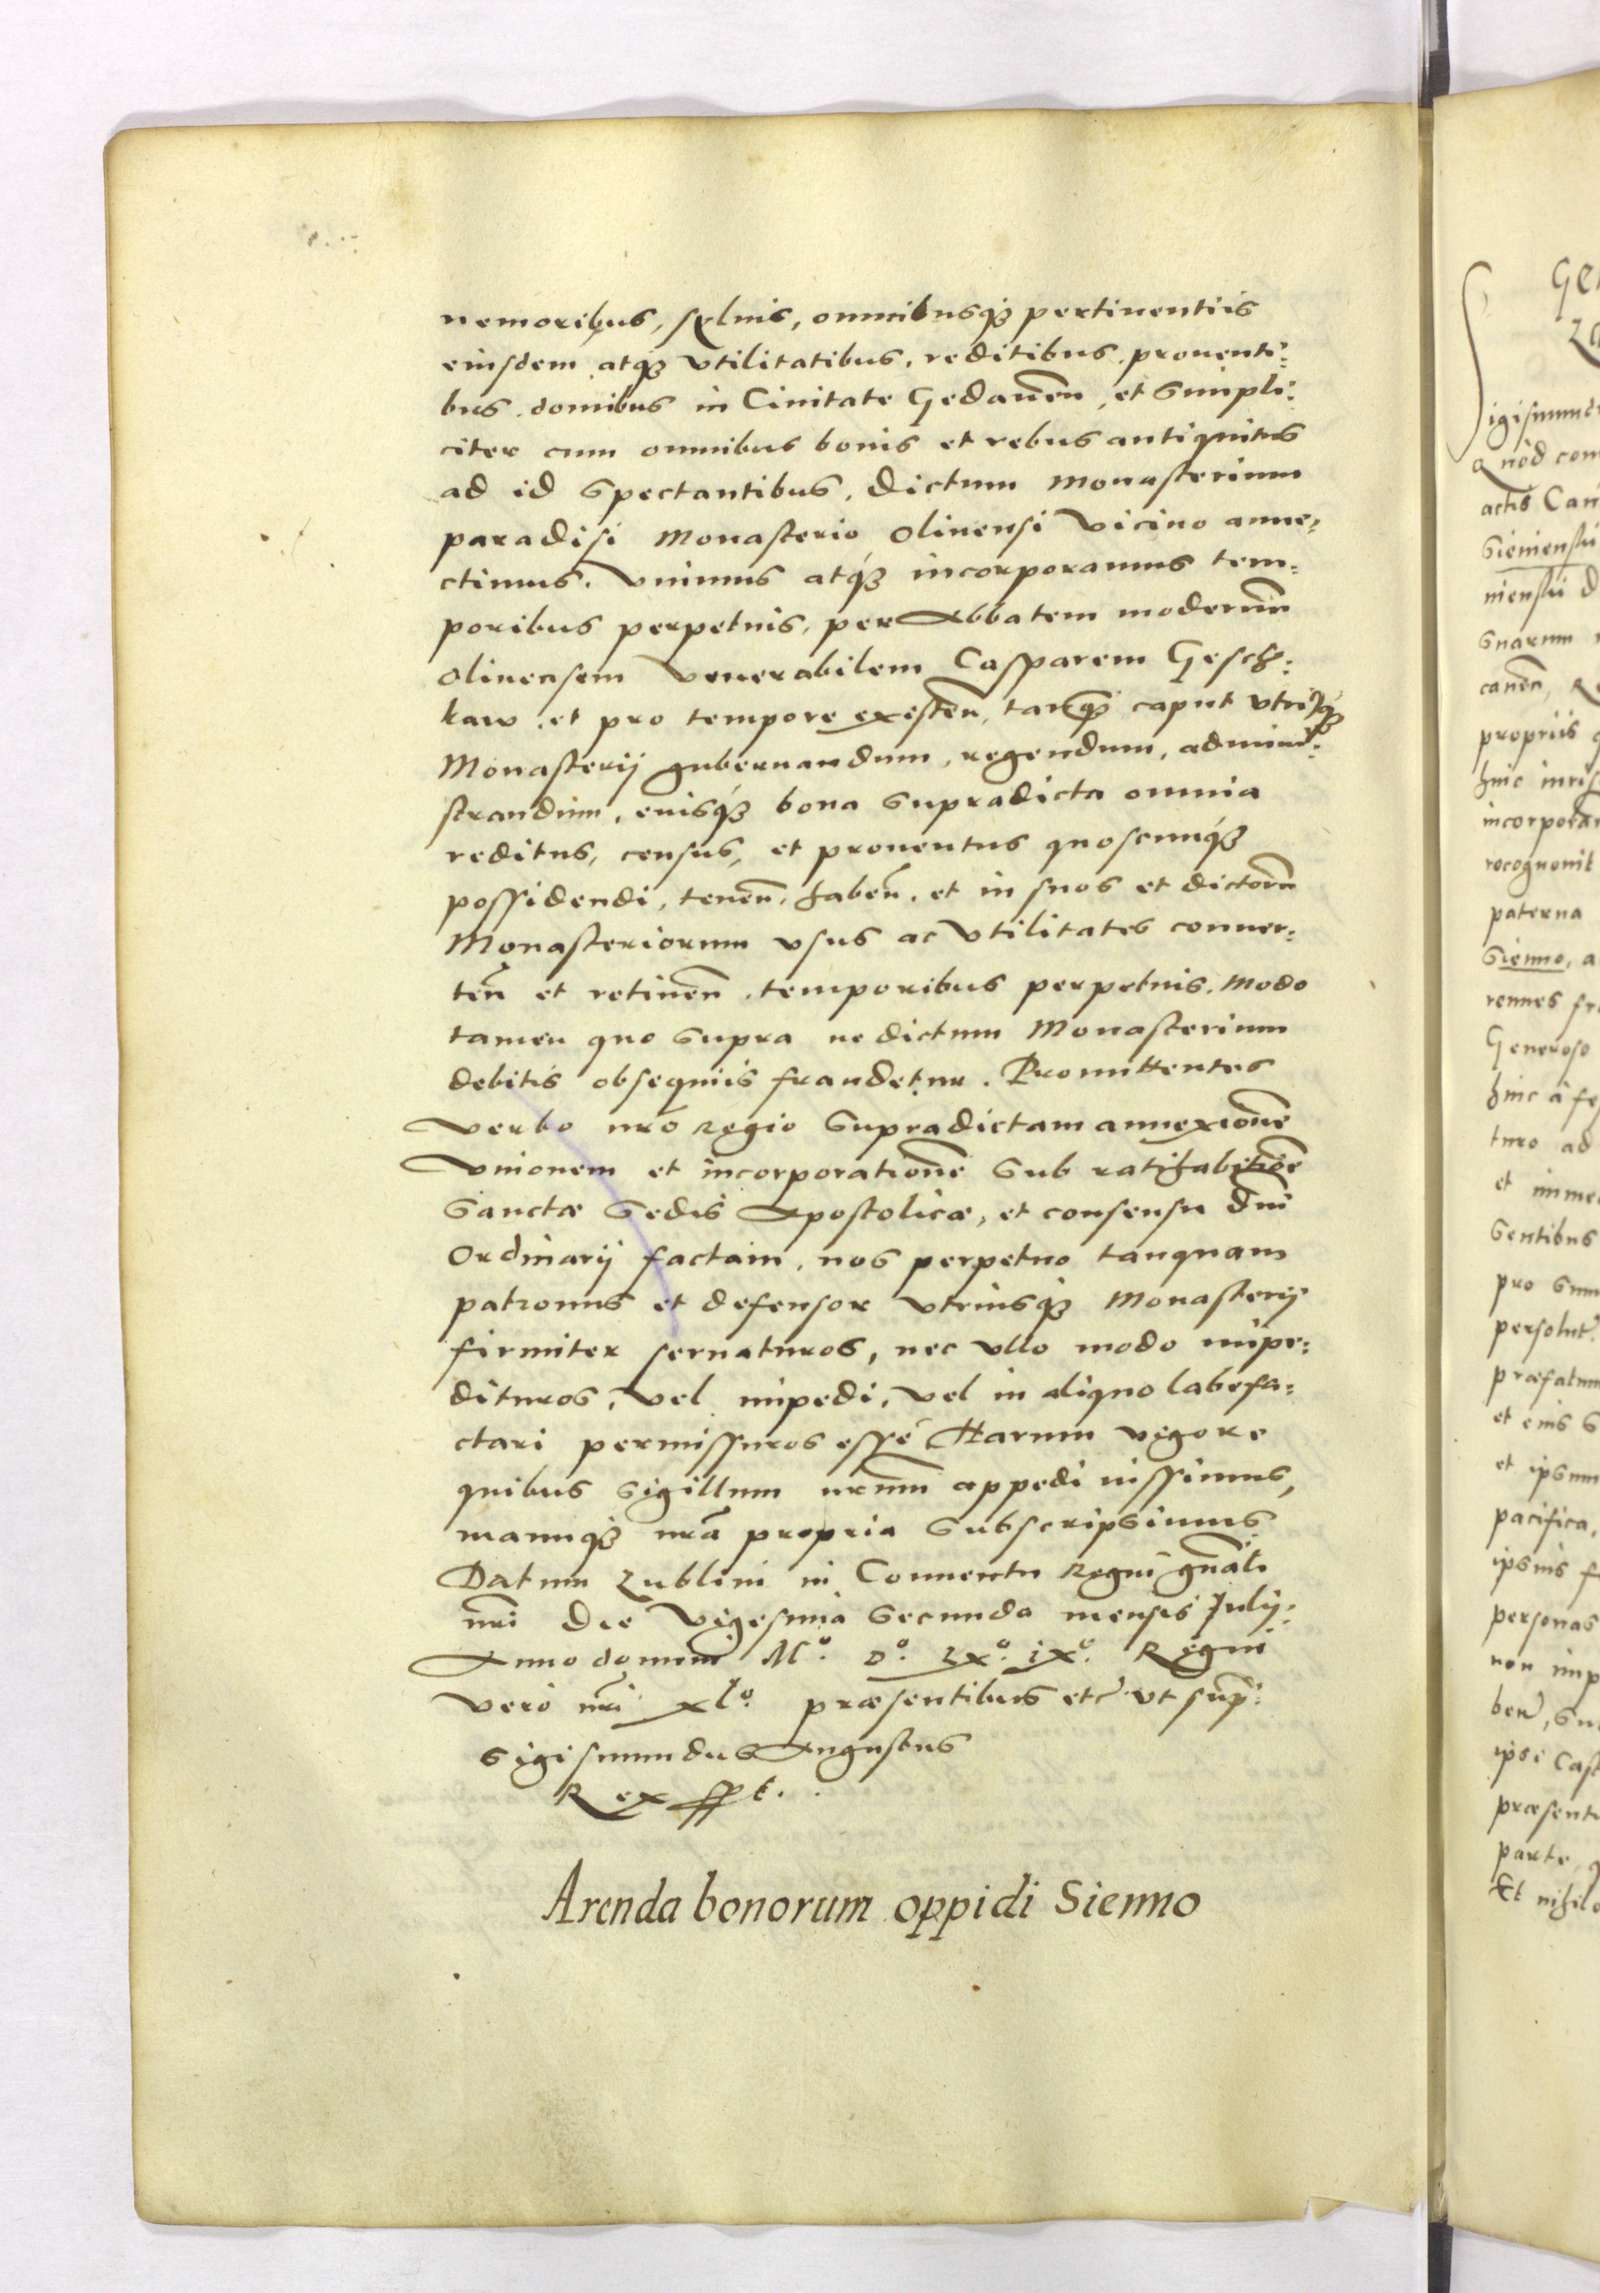 nemoribus, sylvis, omnibusq3 pertinentiis
eiusdem atq3 vtilitatibus, reditibus, prouenti-
bus, domibus in Ciuitate Gedanen̄, et simpli-
citer cum omnibus bonis et rebus antiquitus
ad id spectantibus, dictum monasterium
paradisi Monasterio Oliuensi vicino anne-
ctimus, vnimus atq3 incorporamus tem-
poribus perpetuis, per Abbatem modernum
Oliuensem venerabilem Casparem Gesch-
kaw, et pro tempore existen̄, tanq3 caput vtriusq3
Monasterij gubernandum, regendum, admini-
strandum, eiusq3 bona supradicta omnia
reditus, census, et prouentus quoscunq3
possidendi, tenen̄, haben̄, et in suos et dictorū
Monasteriorum vsus ac vtilitates conuer-
ten̄ et retinen̄, temporibus perpetuis, modo
tamen quo supra ne dictum Monasterium
debitis obsequiis fraudetur. Promittentes
verbo nr̄o regio supradictam annexionē
vnionem et incorporationē sub ratihabitiōe
Sanctæ Sedis Apostolicæ, et consensu dn̄i
Ordinarij factam, nos perpetuo tanquam
patronus et defensor vtriusq3 Monasterij
firmiter seruaturos, nec vllo modo impe-
dituros, vel impedi, vel in aliquo labefa-
ctari permissuros esse Harum vigore
quibus sigillum nr̄um appedi iussimus,
manuq3 nr̄a propria subscripsimus
Datum Lublini in Conuentu Regni gn̄ali
nr̄i die vigesima secunda mensis Julij
Anno domini Mº. Dº. LXº. IXº. Regni
vero nr̄i xlº. præsentibus etc̄ vt supr̄.
Sigismundus Augustus
Rex sspt.
Arenda bonorum oppidi Sienno
Sigismund
Quod com
actis
propriis
paterna
Sienno, a
Generoso
et
Gentibus
præfatum
et eius
et ipsum
pacifica,
ipsius
personas
non imp
ipse Cast
præsent
parte,